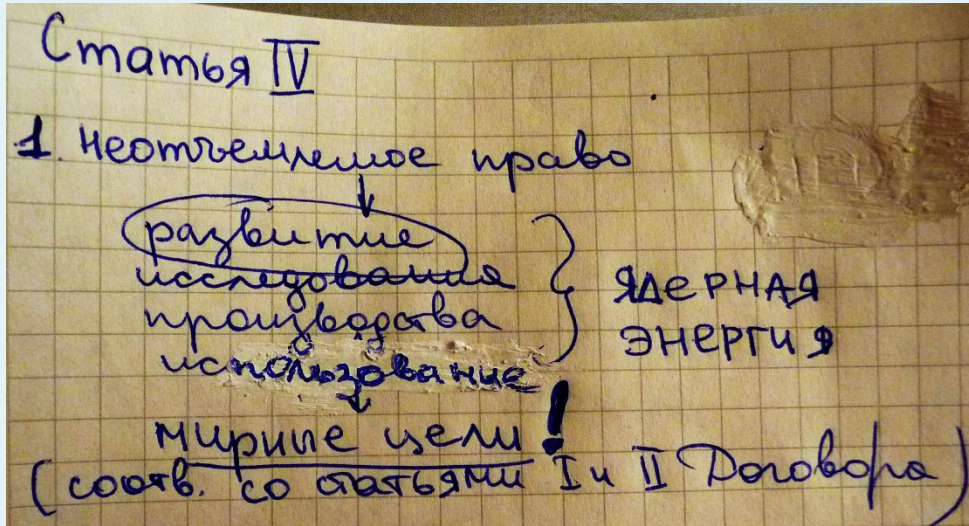 Статья IV
1. Неотъемлемое право
развитие
исследования
производства
использование
ЯДЕРНАЯ
ЭНЕРГИЯ
мирные цели!
(соотв. со статьями I и II Договора)